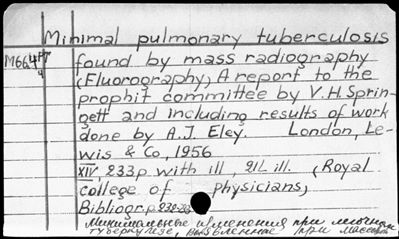 Minimal pulmonary tuberculosis
M664
found by mass radiography
(Fluorography) A report to the
prophit committee by V.H. Sprin-
gett and including results of work
done by A.J. Eley. London, Le-
wis & Co, 1956
XIV, 233p with ill, 21L ill. (Royal
college of physicians)
Bibliogr.p.
Минимальные изменения при легочном
туберкулезе, выявленные при массовой